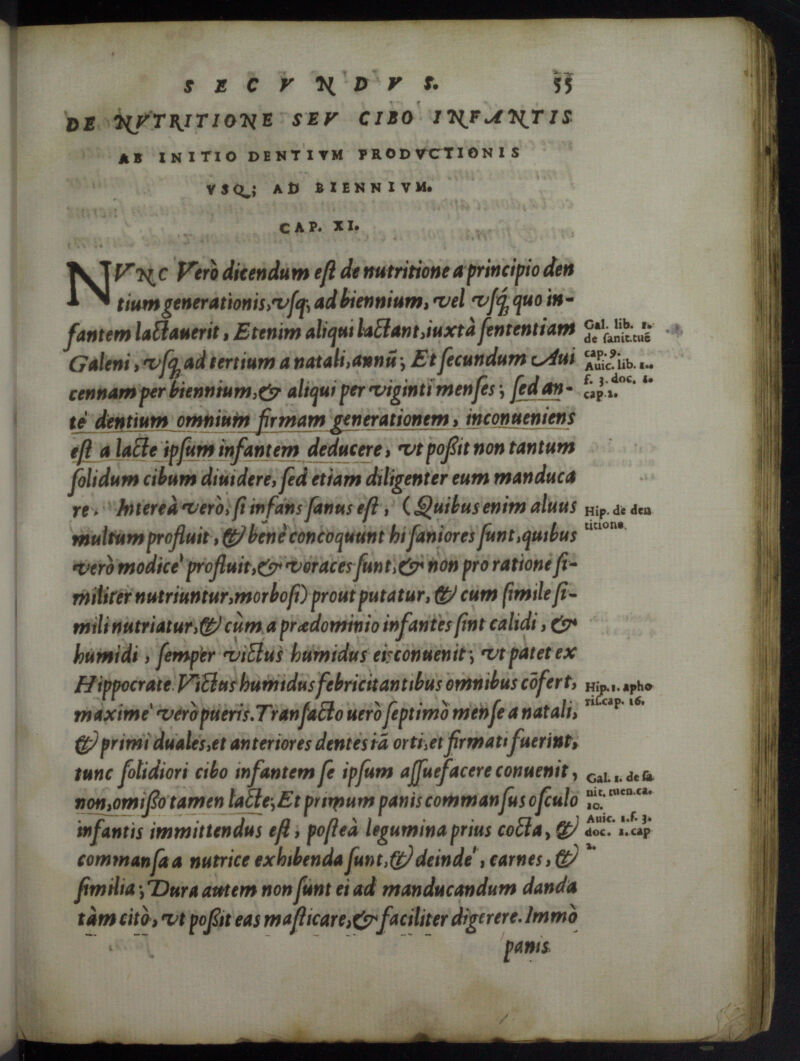 SECVNDVS. 55
DE NVTRITIONE SEV CIBO INFANTIS
AB INITIO DENTIVM PRODVCTIONIS
VSQ; AD BIENNIVM.
CAP. XI.
NVNC Verò dicendum est de nutritione a principio den
tium generationis, vsq; ad biennium, vel vsq; quo in-
fantem lactauerit, Etenim aliqui lactant, iuxtà sententiam
Galeni, vsq; ad tertium a natali, annũ; Et secundum Aui
cennam per biennium, & aliqui per viginti menses; sed an-
te dentium omnium firmam generationem, inconueniens
est a lacte ipsum infantem deducere, vt possit non tantum
solidum cibum diuidere, sed etiam diligenter eum manduca
re. Intereà verò, si infans sanus est, (Quibus enim aluus
multum profluit, & benè concoquunt hi saniores sunt, quibus
verò modice' profluit, & voraces sunt, & non pro ratione si-
militer nutriuntur, morbosi) prout putatur, & cum simile si-
mili nutriatur, & cùm a prædominio infantes sint calidi, &
humidi, semper victus humidus eis conuenit; vt patet ex
Hippocrate Victus humidus febricitantibus omnibus cõfert,
maxime' verò pueris. Transacto uerò septimo mense a natali,
& primi duales, et anteriores dentes iã orti, et firmati fuerint,
tunc solidiori cibo infantem se ipsum assuefacere conuenit,
non, omisso tamen lacte; Et primum panis commansus osculo
infantis immittendus est, posteà legumina prius cocta, &
commansa a nutrice exhibenda sunt, & deinde', carnes, &
similia; Dura autem non sunt ei ad manducandum danda
tàm citò, vt possit eas masticare, & faciliter digerere. Immò
panis
Gal. lib. 1.
de sanit. tuẽ
cap. 9.
Auic. lib. 1.
f. 3. doc. 1.
cap 2.
Hip. de den
titione.
Hip. 1. apho
ris. cap. 16.
Gal. 1. de sa
nit. tuen. ca.
10.
Auic. 1. f. 3.
doc. 1. cap
2.